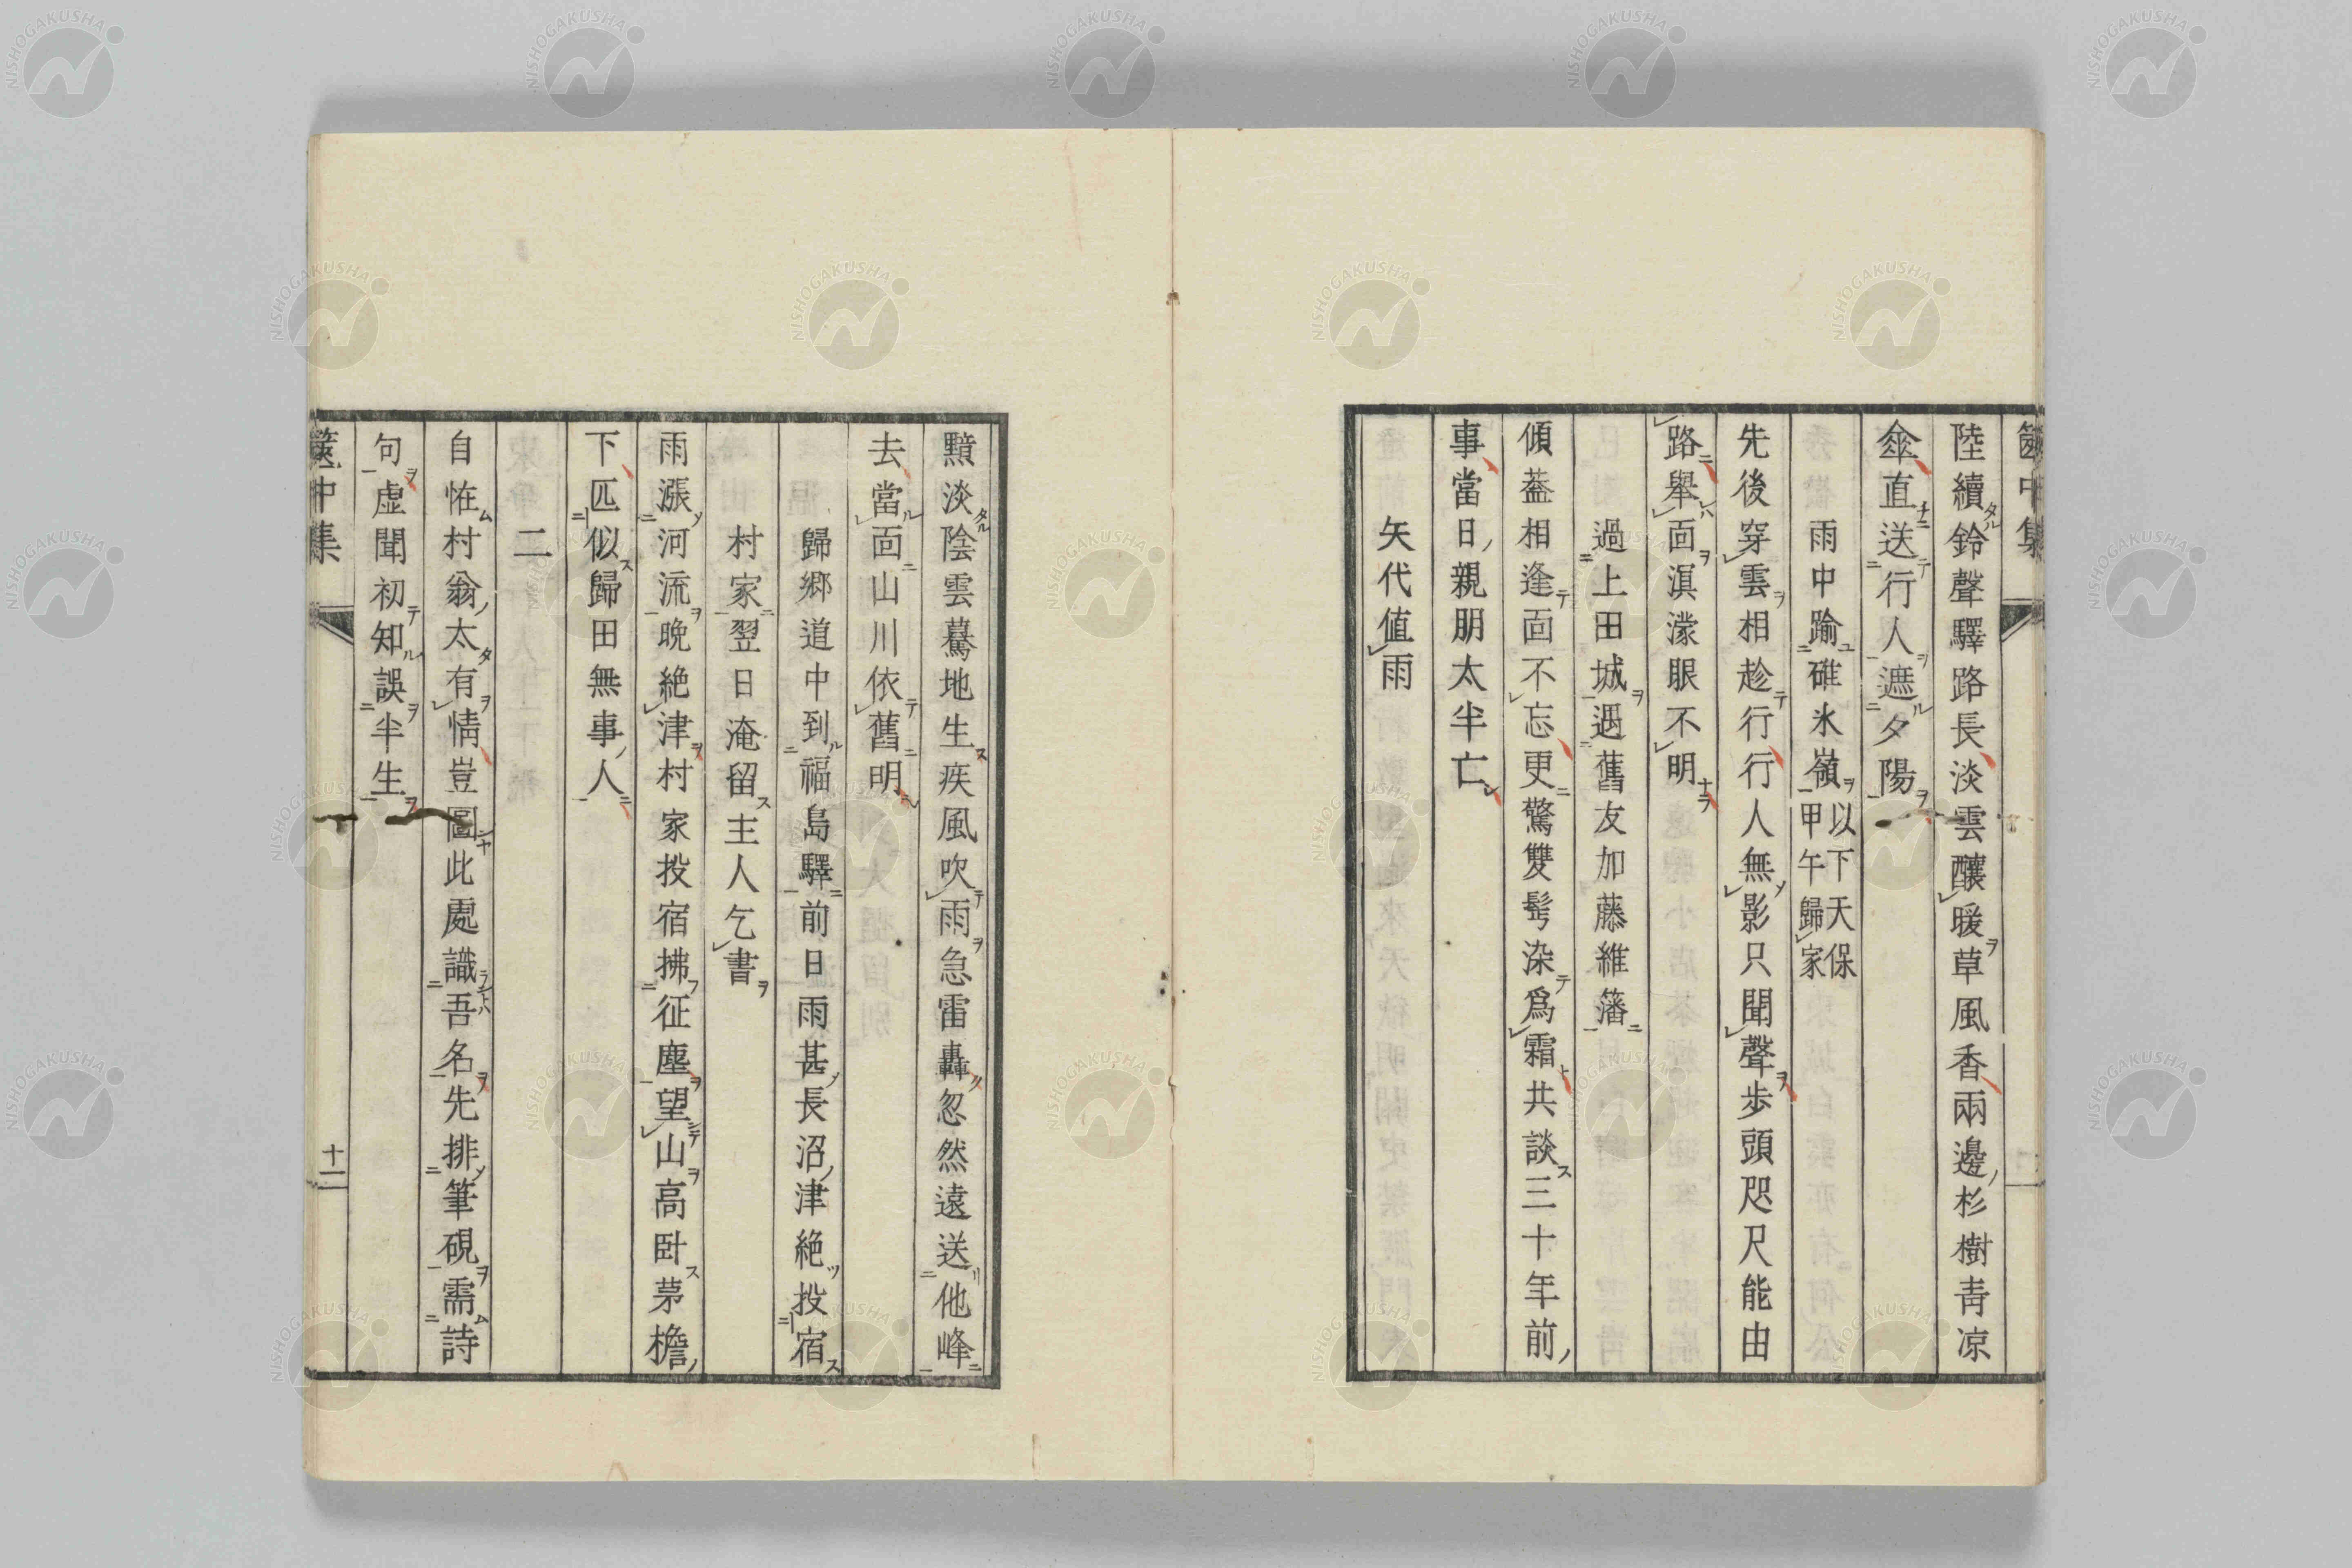 陸續鈴聲驛路長淡雲釀暖草風香兩邊杉樹靑凉
傘直送行人遮夕陽
雨中踰碓氷嶺以下天保甲午歸家
先後穿雲相趁行行人無影只聞聲歩頭咫尺能由
路擧面溟濛眼不明
過上田城遇舊友加藤維藩
傾葢相逢面不忘更驚雙髩染爲霜共談三十年前
事當日親朋太半亡
矢代値雨
黯淡陰雲驀地生疾風吹雨急雷轟忽然遠送他峰
去當面山川依舊明
歸郷道中到福島驛前日雨甚長沼津絶投宿
村家翌日淹留主人乞書
雨漲河流晩絶津村家投宿拂征塵望山高臥茅檐
下匹似歸田無事人
二
自恠村翁太有情豈圖此處識吾名先排筆硯需詩
句虚聞初知誤半生
篋中集
十一
NISHOGAKUSHA